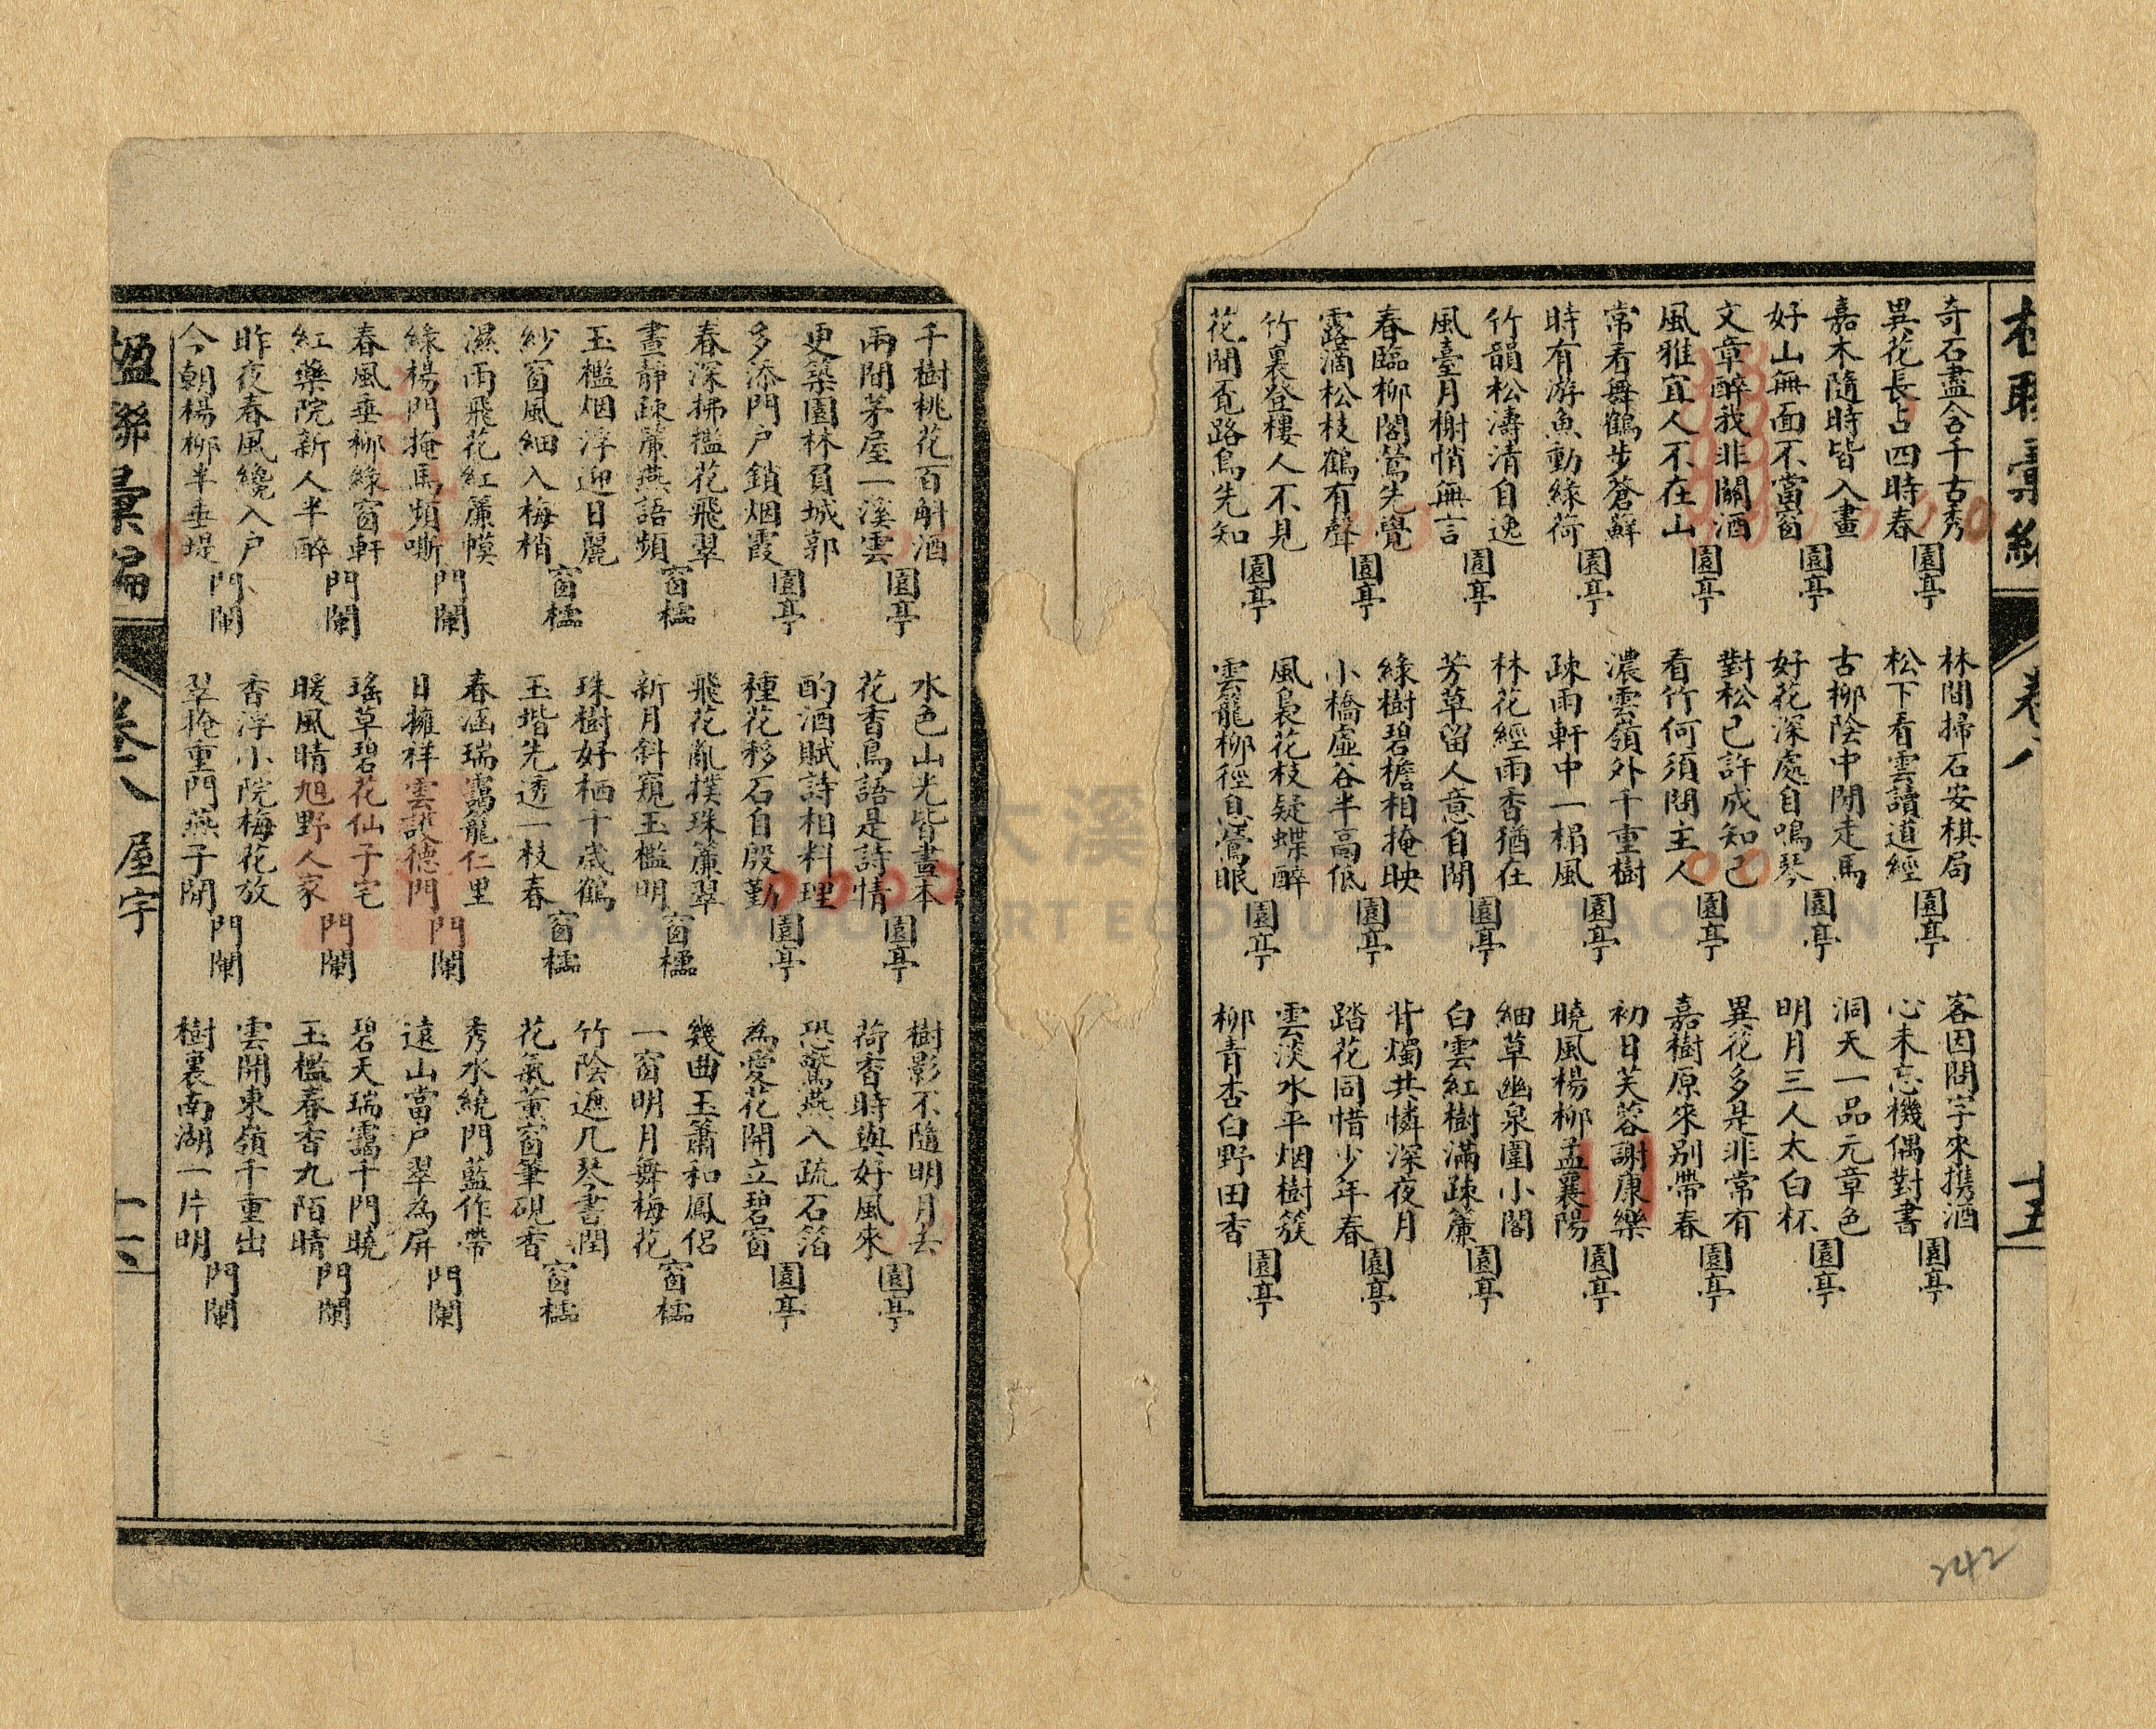 楹聯彙編
卷八
十五
奇石盡含千古秀
異花長占四時春
園亭
嘉木隨時皆入畫
好山無面不當窗
園亭
文章醉我非關酒
風雅宜人不在山
園亭
常看舞鶴步蒼蘚
時有游魚動綠荷
園亭
竹韻松濤清自逸
風臺月榭悄無言
園亭
春臨柳閣鶯先覺
露滴松枝鶴有聲
園亭
竹裏登樓人不見
花間覓路鳥先知
園亭
林間掃石安棋局
松下看雲讀道經
園亭
古柳陰中閒走馬
好花深處自鳴琴
園亭
對松已許成知己
看竹何須問主人
園亭
濃雲嶺外千重樹
疎雨軒中一榻風
園亭
林花經雨香猶在
芳草留人意自閒
園亭
綠樹碧檐相掩映
小橋虛谷半高低
園亭
風裊花枝疑蝶醉
雲籠柳徑息鶯眠
園亭
客因問字來携酒
心未忘機偶對書
園亭
洞天一品元章色
明月三人太白杯
園亭
異花多是非常有
嘉樹原來别帶春
園亭
初日芙蓉謝康樂
曉風楊柳孟襄陽
園亭
細草幽泉圍小閣
白雲紅樹滿疎簾
園亭
背燭共憐深夜月
踏花同惜少年春
園亭
雲淡水平烟樹簇
柳青杏白野田香
園亭
千樹桃花百斛酒
兩間茅屋一溪雲
園亭
更築園林負城郭
多添門户鎖烟霞
園亭
春深拂檻花飛翠
晝靜疎簾燕語頻
窗櫺
玉檻烟浮迎日麗
紗窗風細入梅梢
窗櫺
濕雨飛花紅簾幙
綠楊門掩馬頻嘶
門闌
春風垂柳綠窗軒
紅藥院新人半醉
門闌
昨夜春風纔入户
今朝楊柳半垂堤
門闌
水色山光皆畫本
花香鳥語是詩情
園亭
酌酒賦詩相料理
種花移石自殷勤
園亭
飛花亂撲珠簾翠
新月斜窺玉檻明
窗櫺
珠樹好栖千歲鶴
玉堦先透一枝春
窗櫺
春涵瑞靄籠仁里
日擁祥雲護德門
門闌
瑤草碧花仙子宅
暖風晴旭野人家
門闌
香浮小院梅花放
翠掩重門燕子閒
門闌
樹影不隨明月去
荷香時與好風來
園亭
恐驚燕入疏石箔
為愛花開立碧窗
園亭
幾曲玉簫和鳳侶
一窗明月舞梅花
窗櫺
竹陰遮几琴書潤
花氣薰窗筆硯香
窗櫺
秀水繞門藍作帶
遠山當户翠為屏
門闌
碧天瑞靄千門曉
玉檻春香九陌晴
門闌
雲開東嶺千重出
樹裏南湖一片明
門闌
楹聯彙編
卷八
屋宇
十六
242